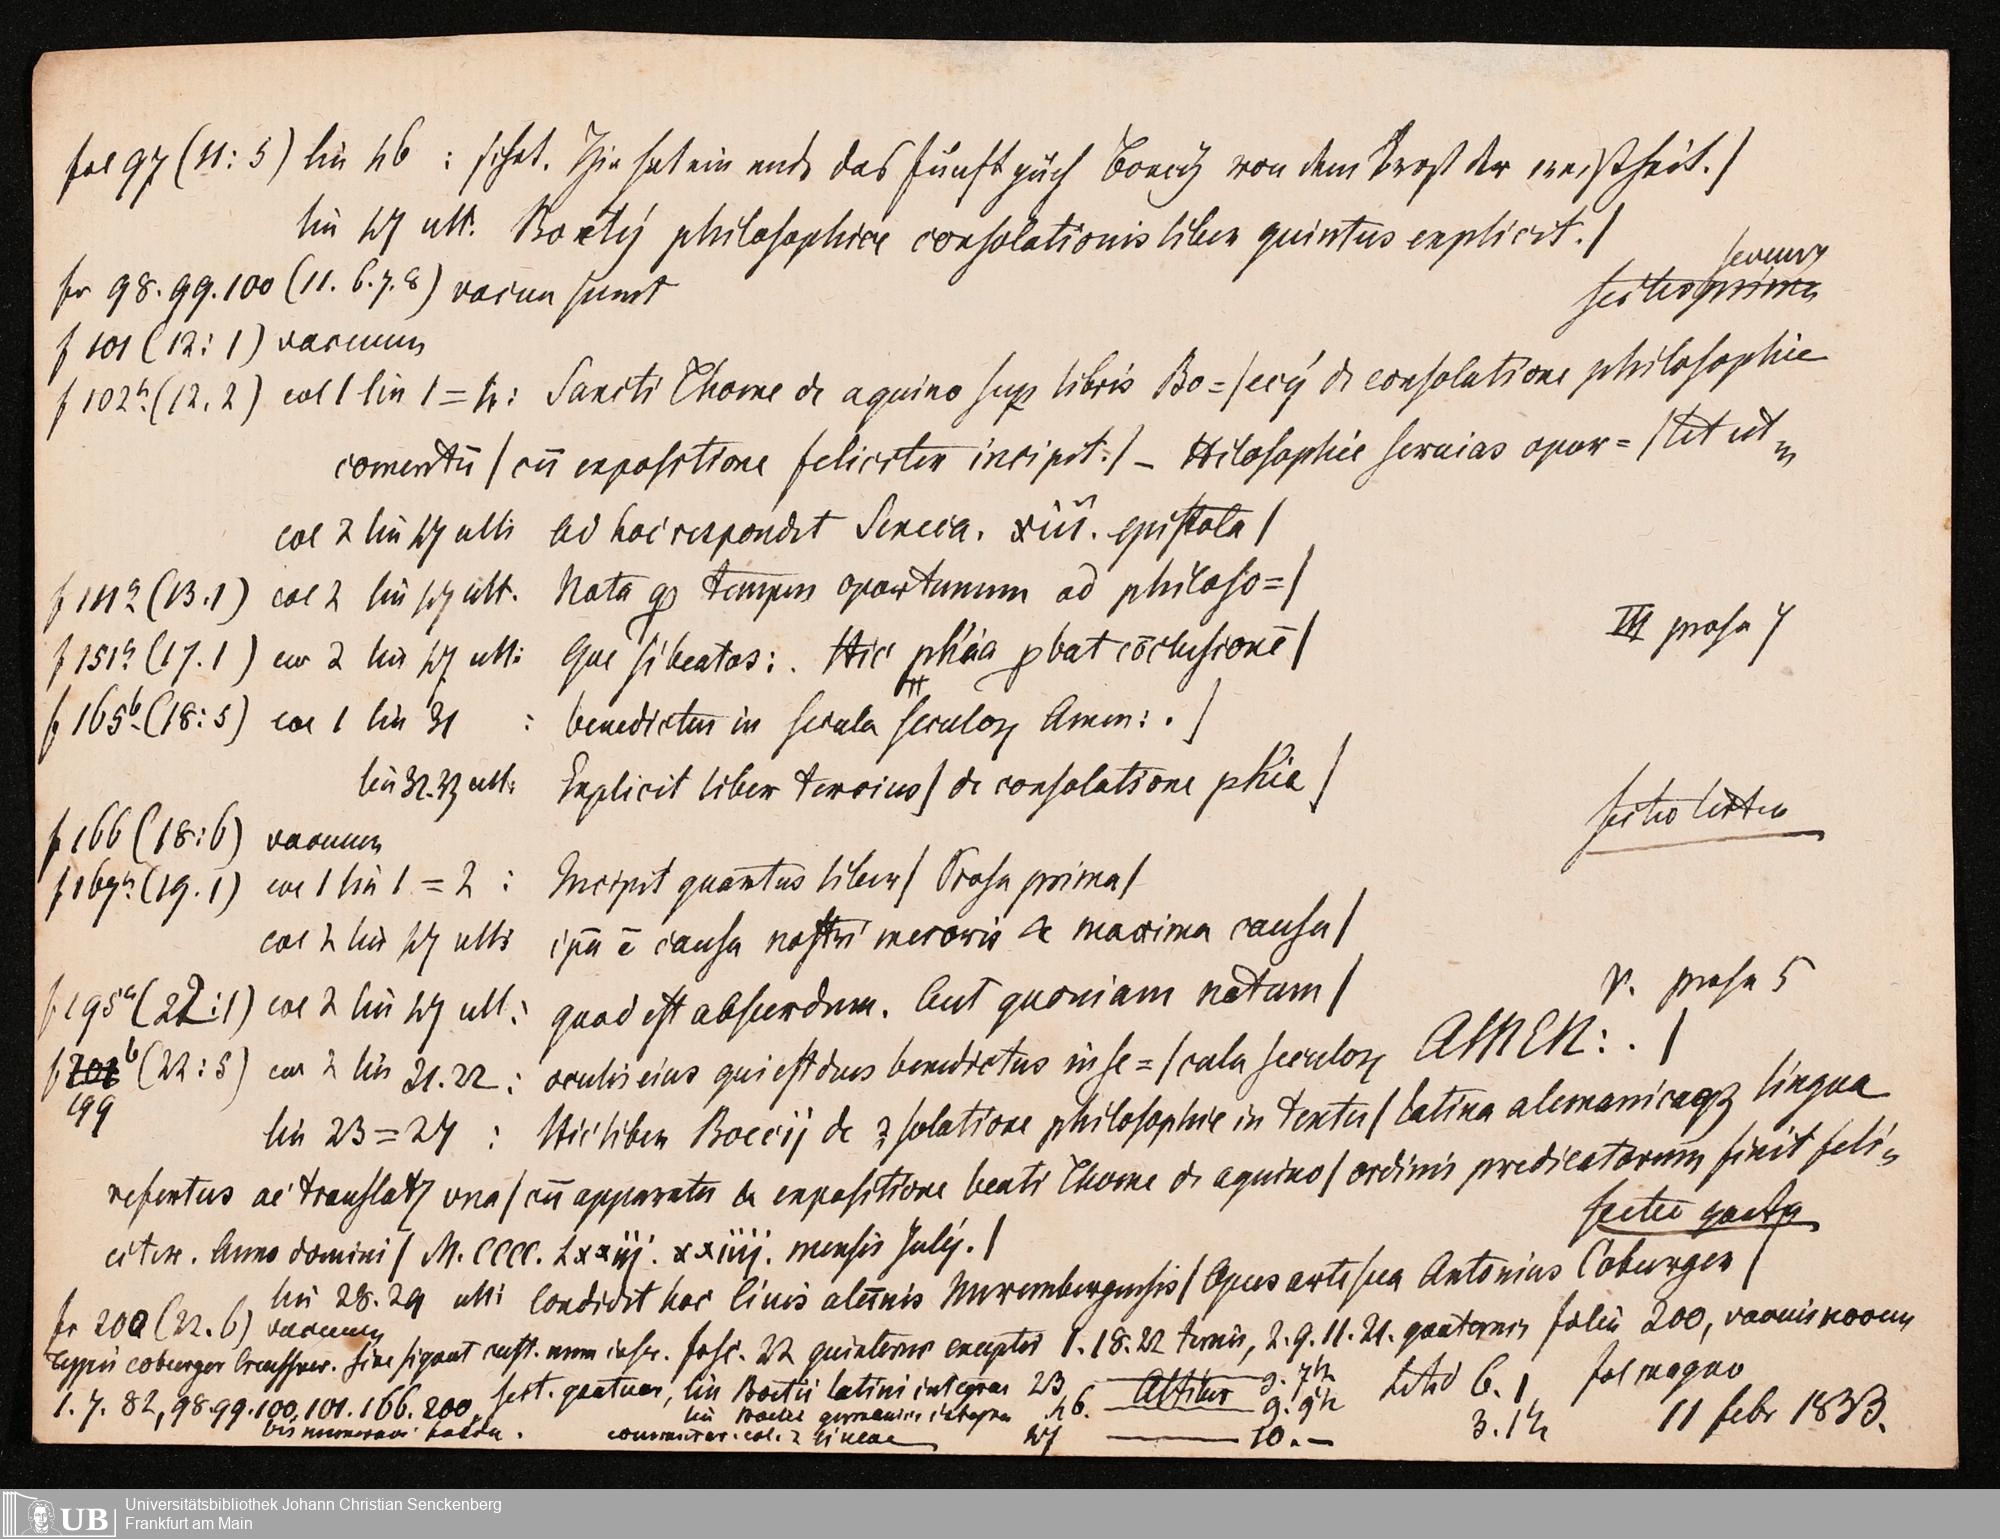 fol 97 (11: 5) lin 46 : schat. Hie hat ein ende das funft puch Boecij von dem trost der weißheit. /
lin 47 ult. Boetij philosophice consolationis liber quintus explicit. /
ff 98. 99. 100 (11. 6. 7. 8) vacua sunt
sectio secunda
f 101 (12: 1) vacuum
f 102a (12. 2) col 1 lin 1 = 4: Sancti Thome de aquino sup libris Bo= / ecij de consolatione philosophie
comentū / cū expositione feliciter incipit. / — Philosophie seruias opor= / tet ut
col 2 lin 47 ult: Ad hoc respondet Seneca. xiii. epistola /
f 111a (13. 1) col 2 lin 47 ult. Nota qp tempus oportunum ad philoso= /
f 151a (17. 1) col 2 lin 47 ult: Que si beatos: . Hic phia pbat cōclusionē /
III prosa
f 165b (18: 5) col 1 lin 31 : benedictus in secula seculoꝝ Amen: . /
lin 32. 33 ult: Explicit liber tercius / de consolatione phie /
f 166 (18: 6) vacuum
sectio tertia
f 167a (19. 1) col 1 lin 1 = 2 : Incipit quartus liber / Prosa prima /
col 2 lin 47 ult: ipā ē causa nostri meroris & maxima causa /
f 195a (22: 1) col 2 lin 47 ult: quod est absurdum. Aut quoniam notum /
V. prosa 5
f 199b (22: 5) col 2 lin 21. 22 : oculis eius qui est dns benedictus in se= / cula seculoꝝ AMEN: . /
lin 23 = 27 : Hic liber Boecij de ꝯsolatione philosophie in textu / latina alemanicaqꝫ lingua
refertus ac translatꝰ vna / cū apparatu & expositione beati Thome de aquino / ordinis predicatorum finit feli=
citer. Anno domini / M. CCCC. Lxxiij. xxiiij. mensis Julij. /
sectio quarta
lin 28. 29 ult: Condidit hoc Ciuis alūnis Nurembergensis / Opus arte sua Antonius Coburger /
ff 200 (22. 6) vacuum
Typis coburger Sine signat cust. num inscr. fasc. 22 quinternis exceptis 1. 18. 22 ternis, 2. 9. 11. 21. quaternis foliis 200, vacuis novem
1. 7. 82, 98. 99. 100. 101. 166. 200. sect. quatuor, lin Boetii latini integrae 23 fol magno
lin Boetii germanici integrae 46.
commentar. col. 2 lineae 47 10. —
11 febr 1833.
Universitätsbibliothek Johann Christian Senckenberg
Frankfurt am Main
UB